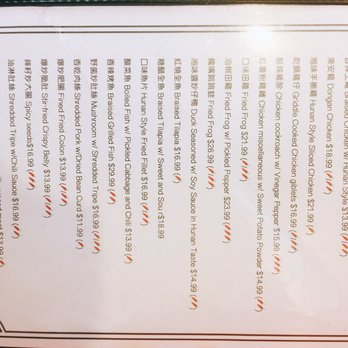 w/ Hunan Style $13.99
東安雞 Dongan Chicken $18.99
湘味手撕雞 Hunan Style Sliced Chicken $21.99
乾鍋雞仔 Griddle Cooked Chicken giblets $16.99
酸辣雞胗 Chicken cockroach w/ Vinegar Pepper $15.99
紅薯粉雞雜 Chicken miscellaneous w/ Sweet Potato Powder $14.99
口味田雞 Fried Frog $21.99
泡椒田雞 Fried Frog w/ Pickled Pepper $23.99
Fried Frog $20.99
湘味醬炒仔鴨 Duck Seasoned w/ Soy Sauce in Hunan Taste $14.99
紅燒全魚 Braised Tilapia $16.99
糖醋全魚 Braised Tilapia w/ Sweet and Sour $18.99
口味魚片 Hunan Style Fried Fillet $16.99
酸菜魚 Boiled Fish w/ Pickled Cabbage and Chili $13.99
香辣烤魚 Braised Grilled Fish $29.99
野菌炒肚絲 Mushroom w/ Shredded Tripe $16.99
香乾肉絲 Shredded Pork w/Dried Bean Curd $11.99
爆炒肥腸 Fired Fined Colon $13.99
爆炒脆肚 Stir-fried Crispy Belly $13.99
辣籽炒大腸 Spicy seeds$16.99
油淋肚絲 Shredded Tripe w/Chili Sauce $16.99
$13.99